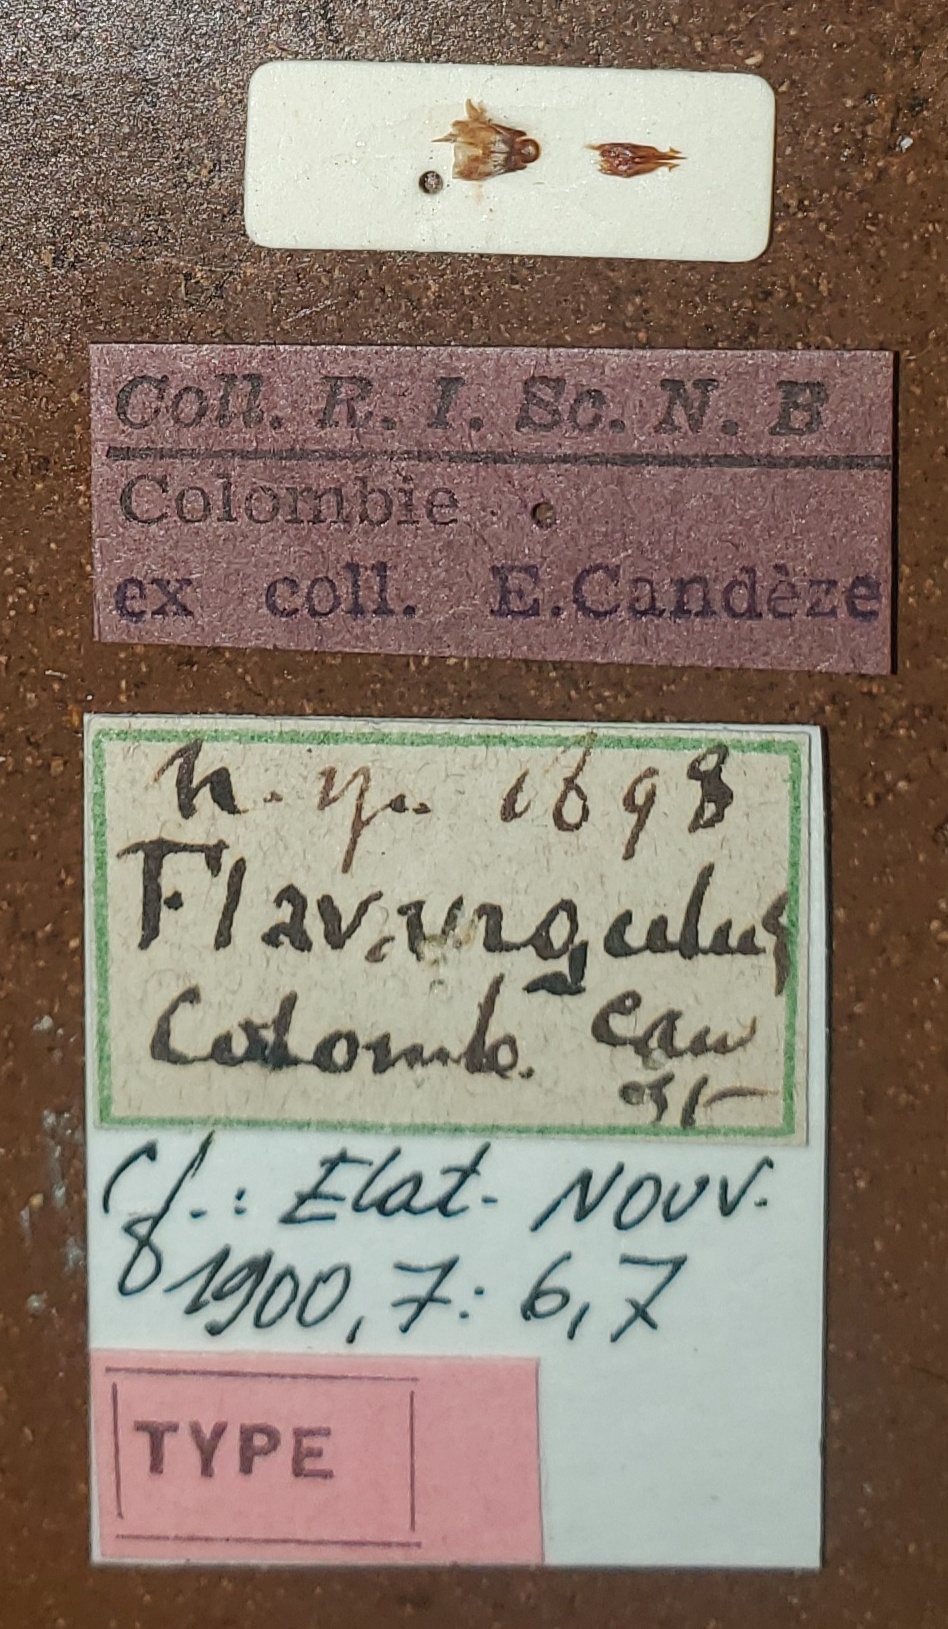 Coll. R. I. Sc. N. B
Colombie
ex coll. E.Candèze
1898
Flavi
Colomb. Can
Cf.: Elat. NOUV.
1900, 7: 6,7
TYPE